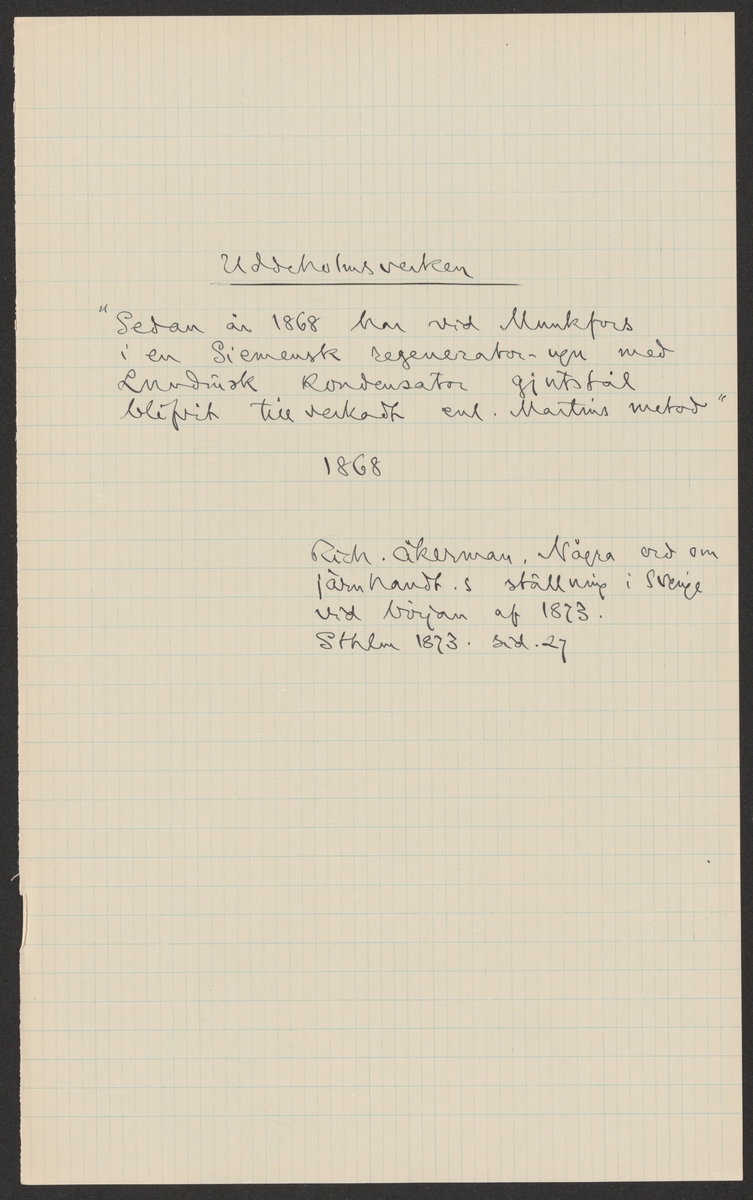 Uddeholmsverken
"Sedan år 1868 har vid Munkfors
i en Siemensk regenerator-ugn med
Lundinsk kondensator gjutstål
blifvit tillverkadt enl. Martins metod"
1868
Rich. Åkerman, Några ord om
järnhandt.s ställning i Sverige
vid början af 1873.
Sthlm 1873. sid. 27